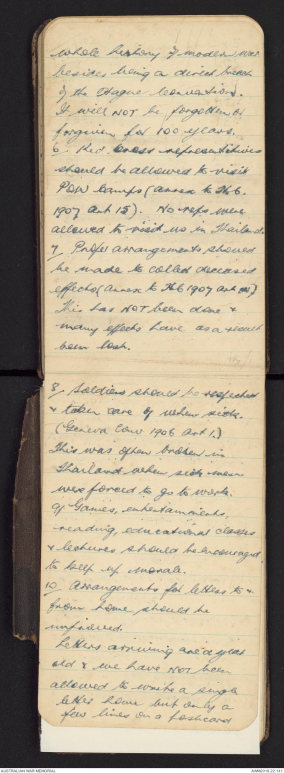 whole history of modern war
besides being a direct breach
of the Hague Conventions.
It will NOT be forgotten or
forgiven for 100 years.
6. Red Cross representatives
should be allowed to visit
POW Camps (annex to H6.
1907 art 15). No reps were
allowed to visit us in Thailand.
7. Proper arrangements should
be made to collect deceased
effects (annex to H6 1907 art
This has NOT been done &
many effects have as a result
been lost.
8. Soldiers should be respected
& taken care of when sick.
(Geneva Conv 1906 art 1.)
This was often broken in
Thailand when sick men
were forced to go to work.
9. Games, entertainments,
reading, educational classes
& lectures should be encouraged
to keep up morale.
10. Arrangements for letters to &
from home should be
improved.
Letters arriving are a year
old & we have NOT been
allowed to write a single
letter home but only a
few lines on a postcard
AUSTRALIAN WAR MEMORIAL